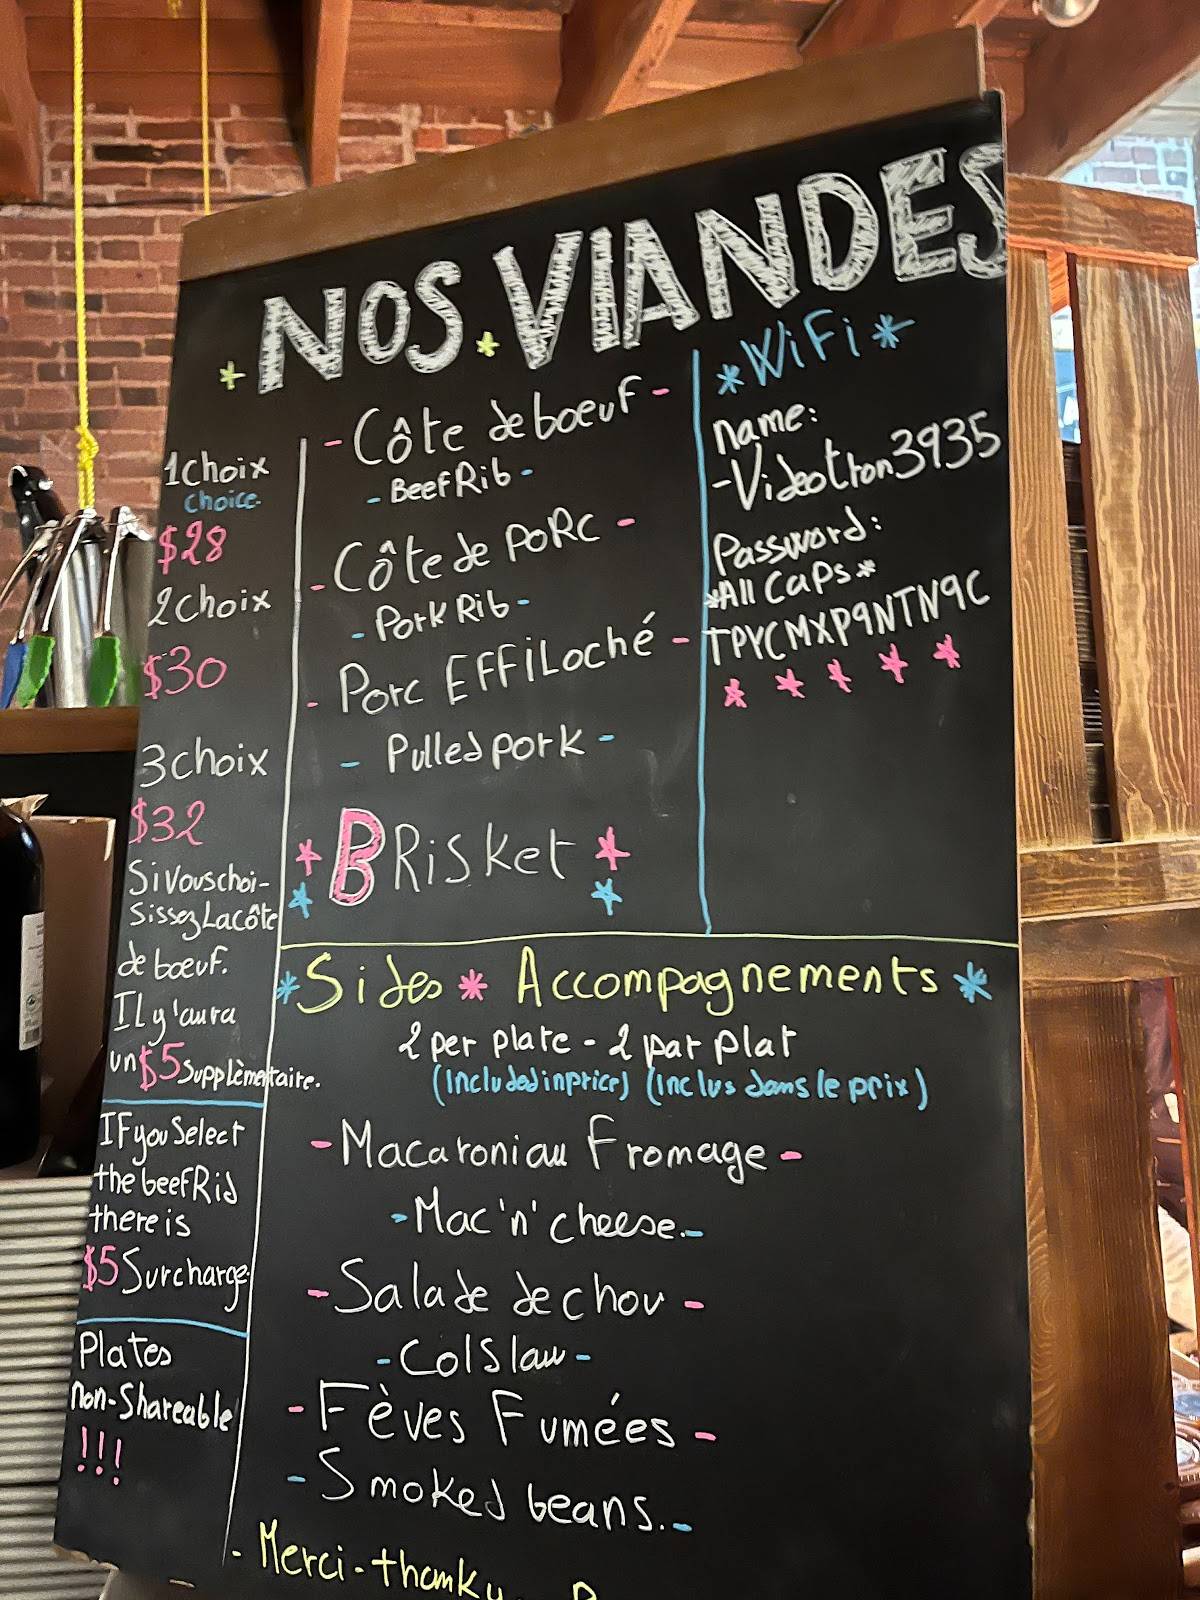 * NOS * VIANDES
1 choix
choice.
$28
2 choix
$30
3 choix
$32
Si vous choi-
sissez La côte
de boeuf.
Il y'aura
un $5 supplèmentaire.
If you Select
the beef Rid
there is
$5 Surcharge.
Plates
non-Shareable
!!!
- Côte de boeuf -
- Beef Rib -
- Côte de Porc -
- Pork Rib -
- Porc Effiloché -
- Pulled pork -
* BRisket *
* WiFi *
name:
- Videotron3935
Password:
*All Caps*
TPYCMXP9NTN9C
* * * * *
* Sides * Accompagnements *
2 per plate - 2 par plat
(Included in price) (Inclus dans le prix)
- Macaroni au Fromage -
- Mac 'n' cheese. -
- Salade de chou -
- Colslaw -
- Fèves Fumées -
- Smoked beans. -
- Merci - thanky